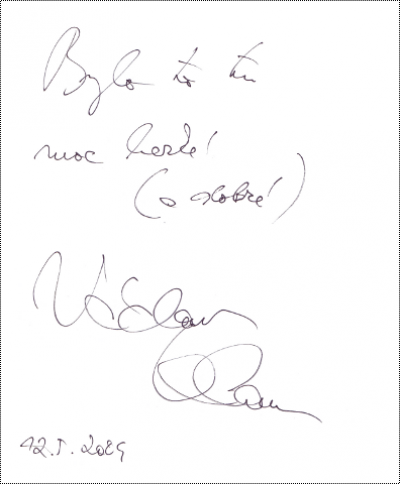 Bylo to tu
moc hezké!
(a dobré!)
Václav
12.5. 2024